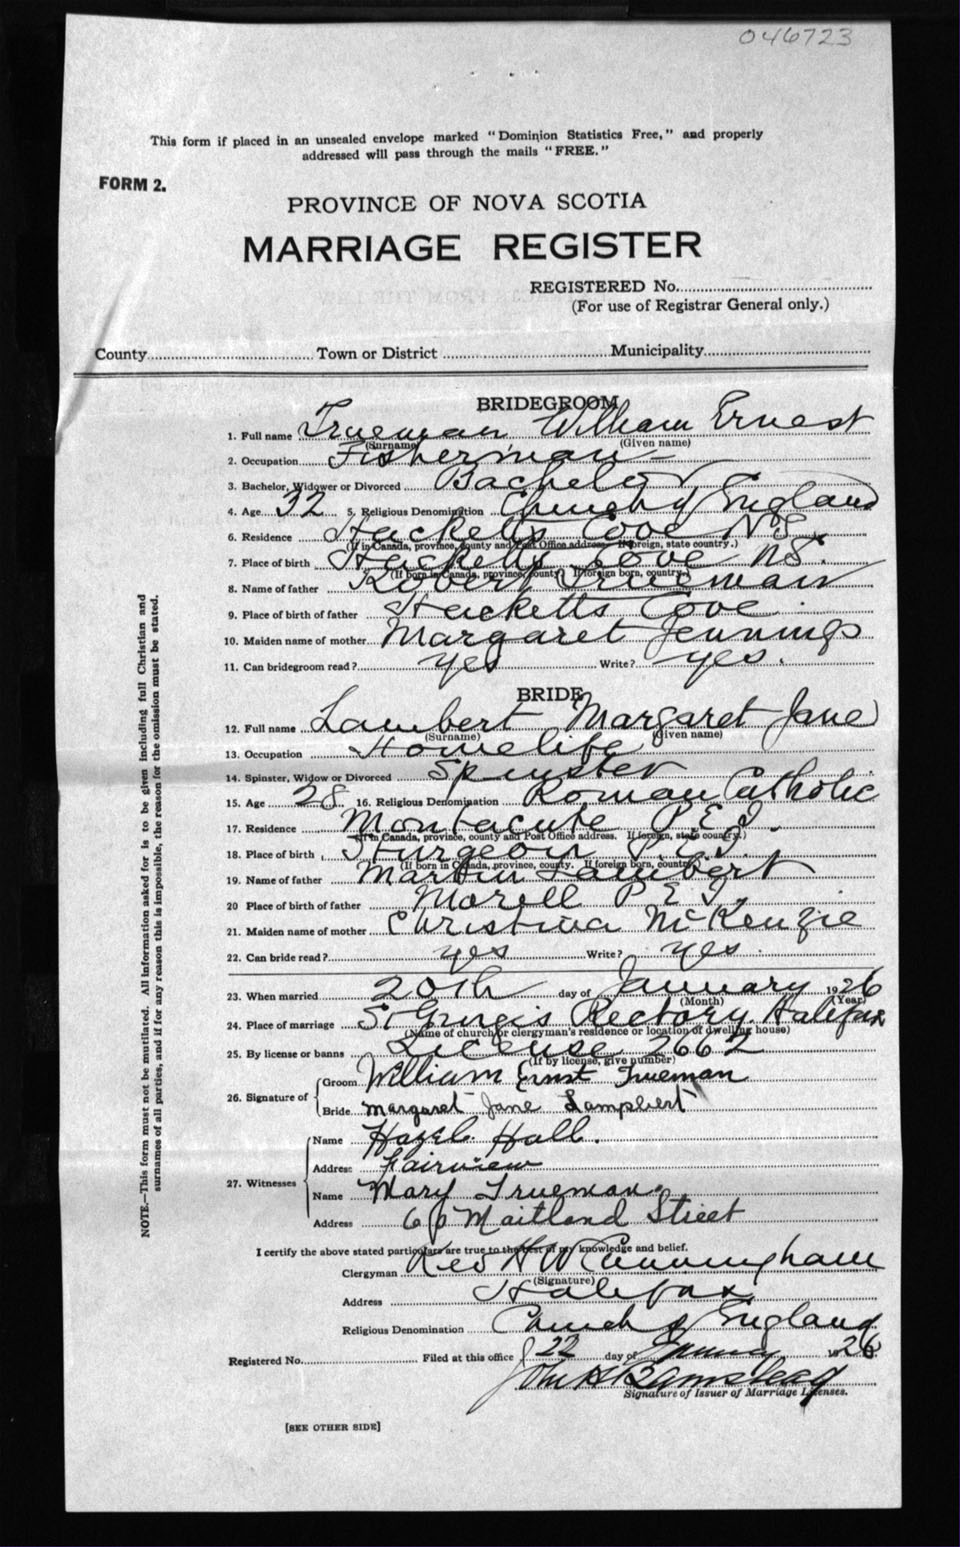 046723
This form if placed in an unsealed envelope marked "Dominion Statistics Free," and properly
addressed will pass through the mails "FREE."
FORM 2.
PROVINCE OF NOVA SCOTIA
MARRIAGE REGISTER
REGISTERED No.
(For use of Registrar General only.)
County Town or District Municipality
BRIDEGROOM
1. Full name Trueman William Ernest
(Surname) (Given name)
2. Occupation Fisherman
3. Bachelor, Widower or Divorced Bachelor
4. Age 32 5. Religious Denomination Church of England
6. Residence Hacketts Cove N.S.
(If in Canada, province, county and Post Office address. If foreign, state country.)
7. Place of birth Hacketts Cove N.S.
(If born in Canada, province, county. If foreign born, country.)
8. Name of father Robert Trueman
9. Place of birth of father Hacketts Cove
10. Maiden name of mother Margaret Jennings
11. Can bridegroom read? yes Write? yes.
BRIDE
12. Full name Lambert Margaret Jane
(Surname) (Given name)
13. Occupation Home life
14. Spinster, Widow or Divorced Spinster
15. Age 28 16. Religious Denomination Roman Catholic
17. Residence Montacute P.E.I.
(If in Canada, province, county and Post Office address. If foreign, state country.)
18. Place of birth Sturgeon P.E.I.
(If born in Canada, province, county. If foreign born, country.)
19. Name of father Martin Lambert
20 Place of birth of father Morell P.E.I.
21. Maiden name of mother Christina McKenzie
22. Can bride read? yes Write? yes.
23. When married 20th day of January 1926
(Month) (Year)
24. Place of marriage St Georges Rectory. Halifax
(Name of church or clergyman's residence or location of dwelling house)
25. By license or banns License 2662
(If by license, give number)
26. Signature of Groom William Ernst Trueman
Bride Margaret Jane Lampbert
27. Witnesses Name Hazel Hall.
Address Fairview
Name Mary Trueman.
Address Maitland Street
I certify the above stated particulars are true to the best of my knowledge and belief.
Clergyman Rev H W Cunningham
(Signature)
Address Halifax
Religious Denomination Church of England
Registered No. Filed at this office 22 day of 1926
John
Signature of Issuer of Marriage Licenses.
[SEE OTHER SIDE]
NOTE.—This form must not be mutilated. All information asked for is to be given including full Christian and
surnames of all parties, and if for any reason this is impossible, the reason for the omission must be stated.